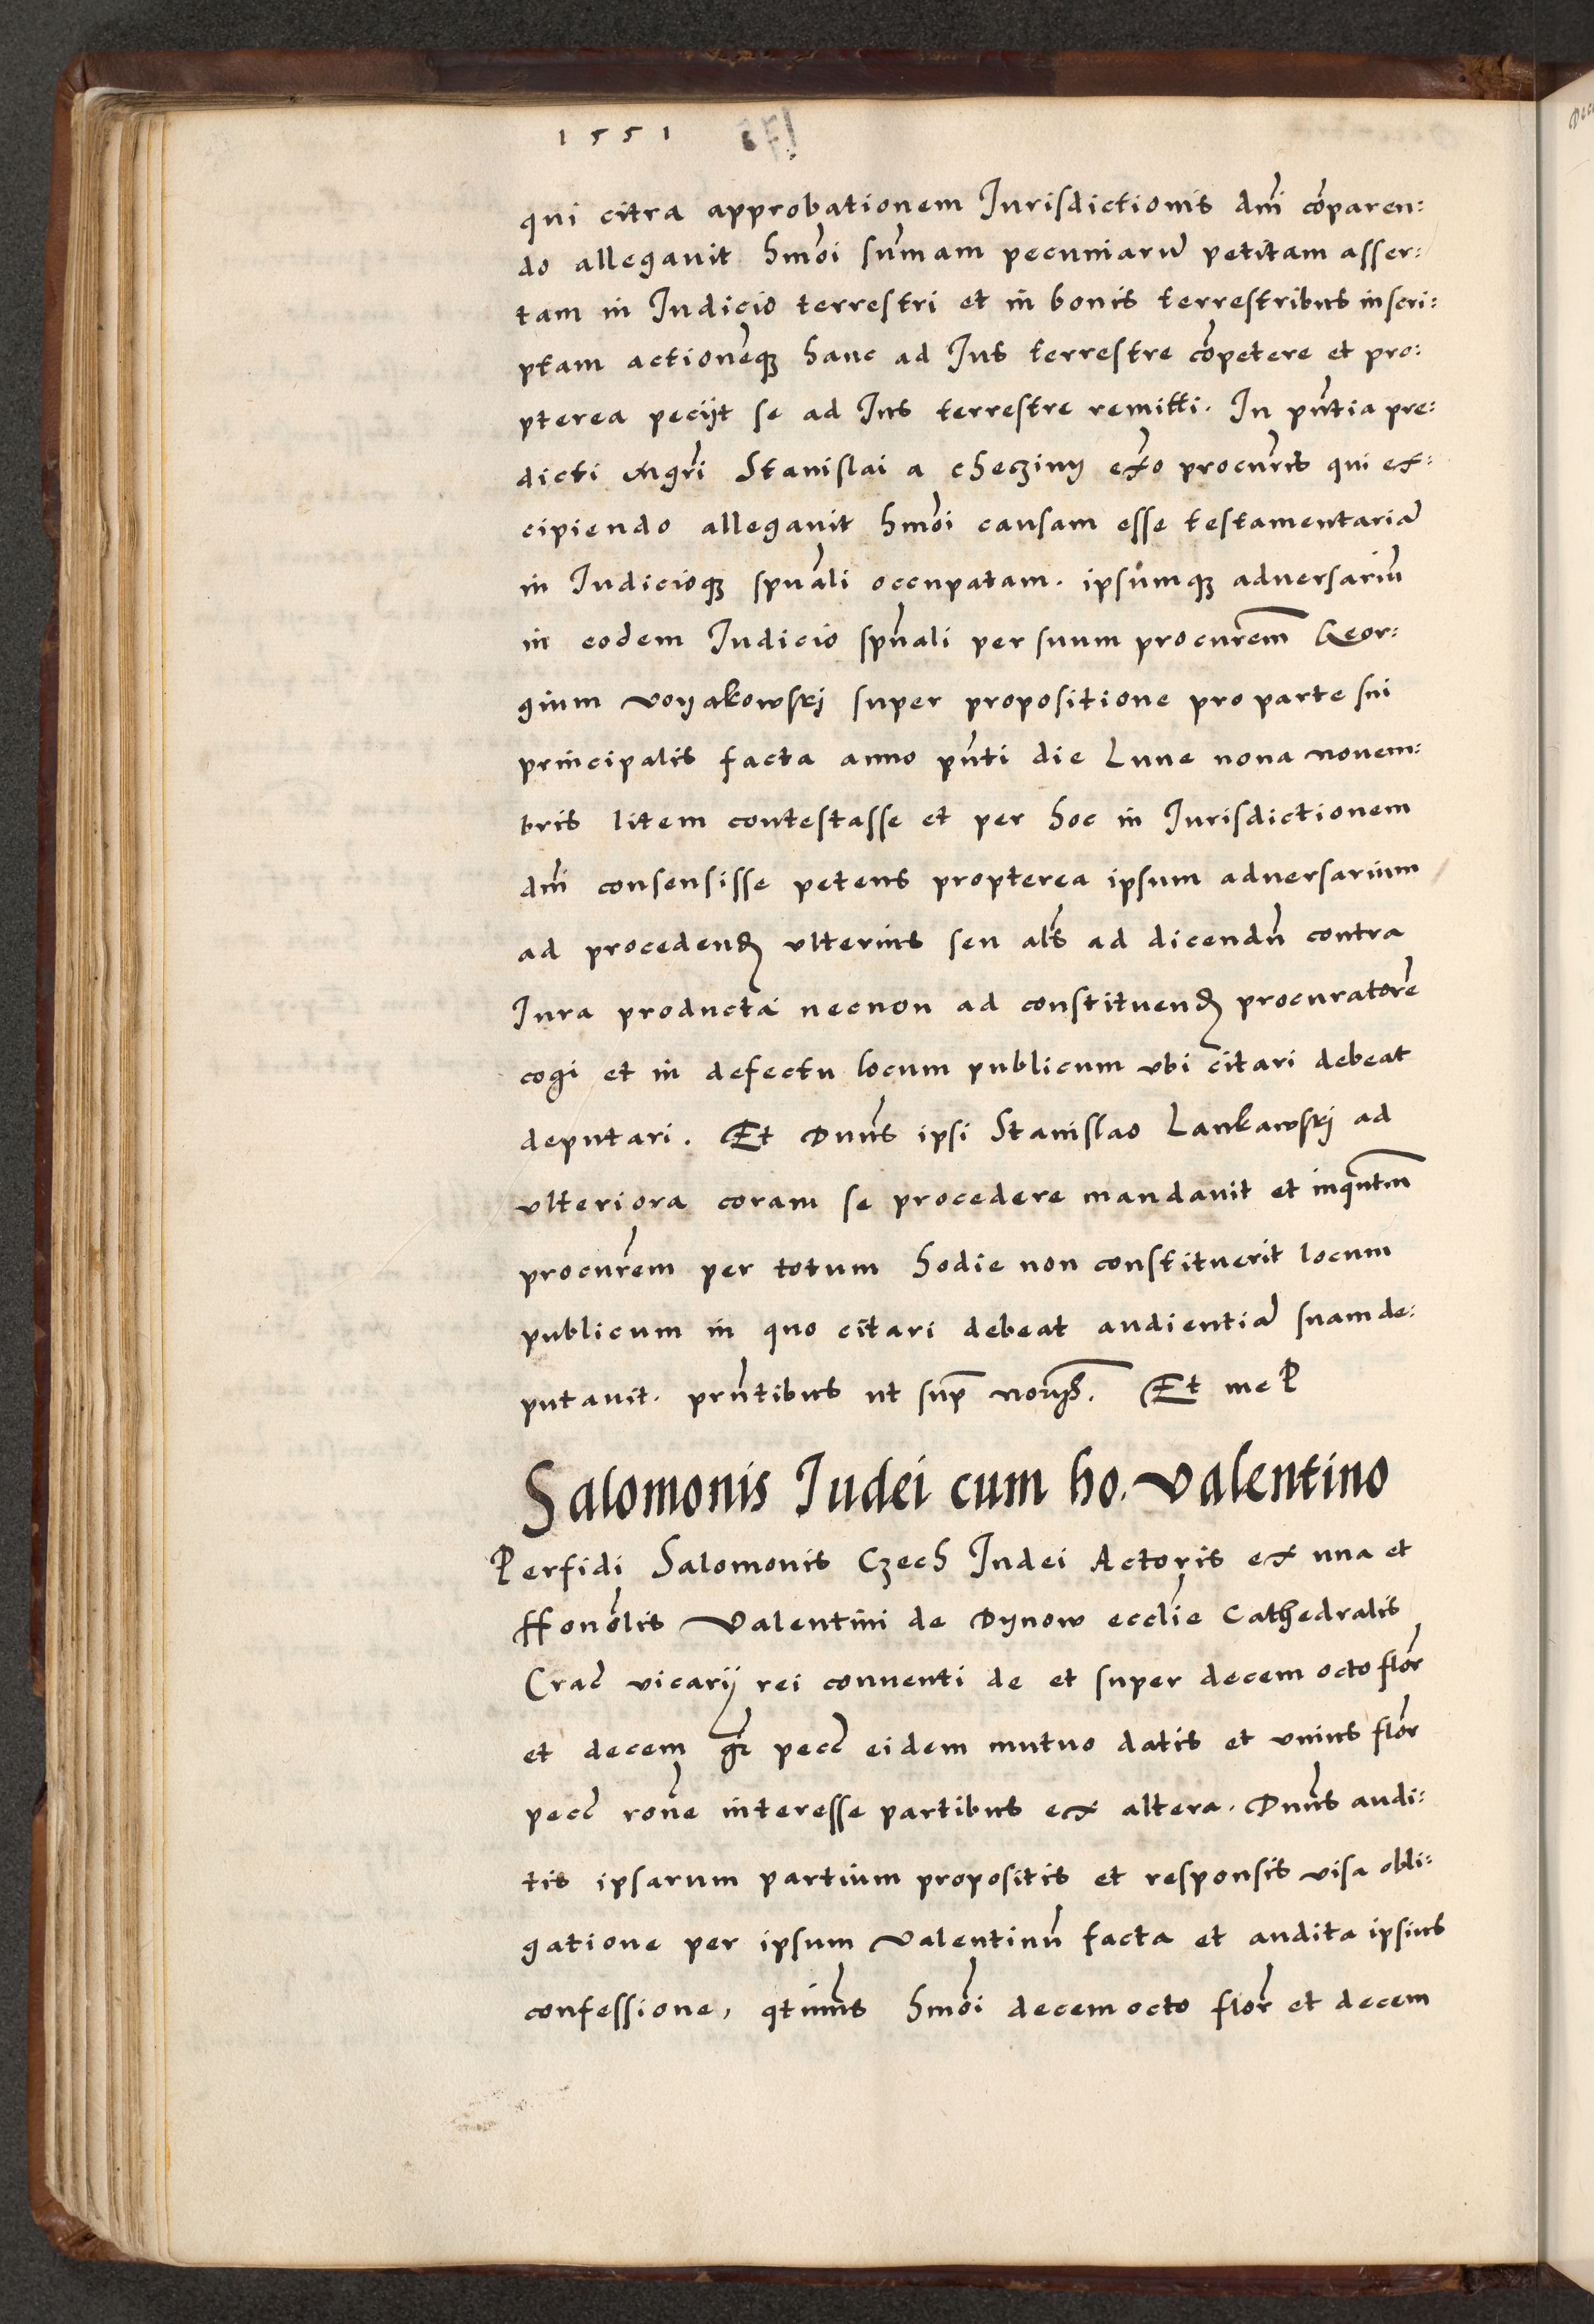 1551
qui citra approbationem Jurisdictionis dnĩ cõparen:
do allegauit hmõi sum̃am pecuniarũ petitam asser:
tam in Judicio terrestri et in bonis terrestribus inscri:
ptam actionẽqꝫ hanc ad Jus terrestre cõpetere et pro:
pterea pecijt se ad Jus terrestre remitti. In pñtia pre:
dicti Mgrĩ Stanislai a checziny exõ procurñs qui ex:
cipiendo allegauit hmõi causam esse testamentariã
in Judicioqꝫ spuãli occupatam. ipsumqꝫ aduersariũ
in eodem Judicio spuãli per suum procurẽm Geor:
gium Voyakowskj super propositione pro parte sui
principalis facta anno pñti die Lune nona Nouem:
bris litem contestasse et per hoc in Jurisdictionem
dnĩ consensisse petens propterea ipsum aduersarium
ad procedenđ vlterius seu als̃ ad dicendũ contra
Jura producta necnon ad constituenđ procuratorẽ
cogi et in defectu locum publicum vbi citari debeat
deputari. Et Dnũs ipsi Stanislao Lankawskj ad
vlteriora coram se procedere mandauit et inqũtm
procurẽm per totum hodie non constituerit locum
publicum in quo citari debeat audientiã suam de:
putauit. prñtibus ut sup̃ Et me P
Salomonis Judei cum ho. Valentino
Perfidi Salomonis Czech Judei Actoris ex una et
Honõlis Valentini de Dynow eccliẽ Cathedralis
Crac̃ vicarij rei conuenti de et super decem octo flor̃
et decem gr̃ pecc̃ eidem mutuo datis et vnius flor̃
pecc̃ rõne interesse partibus ex altera. Dnũs audi:
tis ipsarum partium propositis et responsis visa obli:
gatione per ipsum Valentinũ facta et audita ipsius
confessione, hmõi decem octo flor̃ et decem